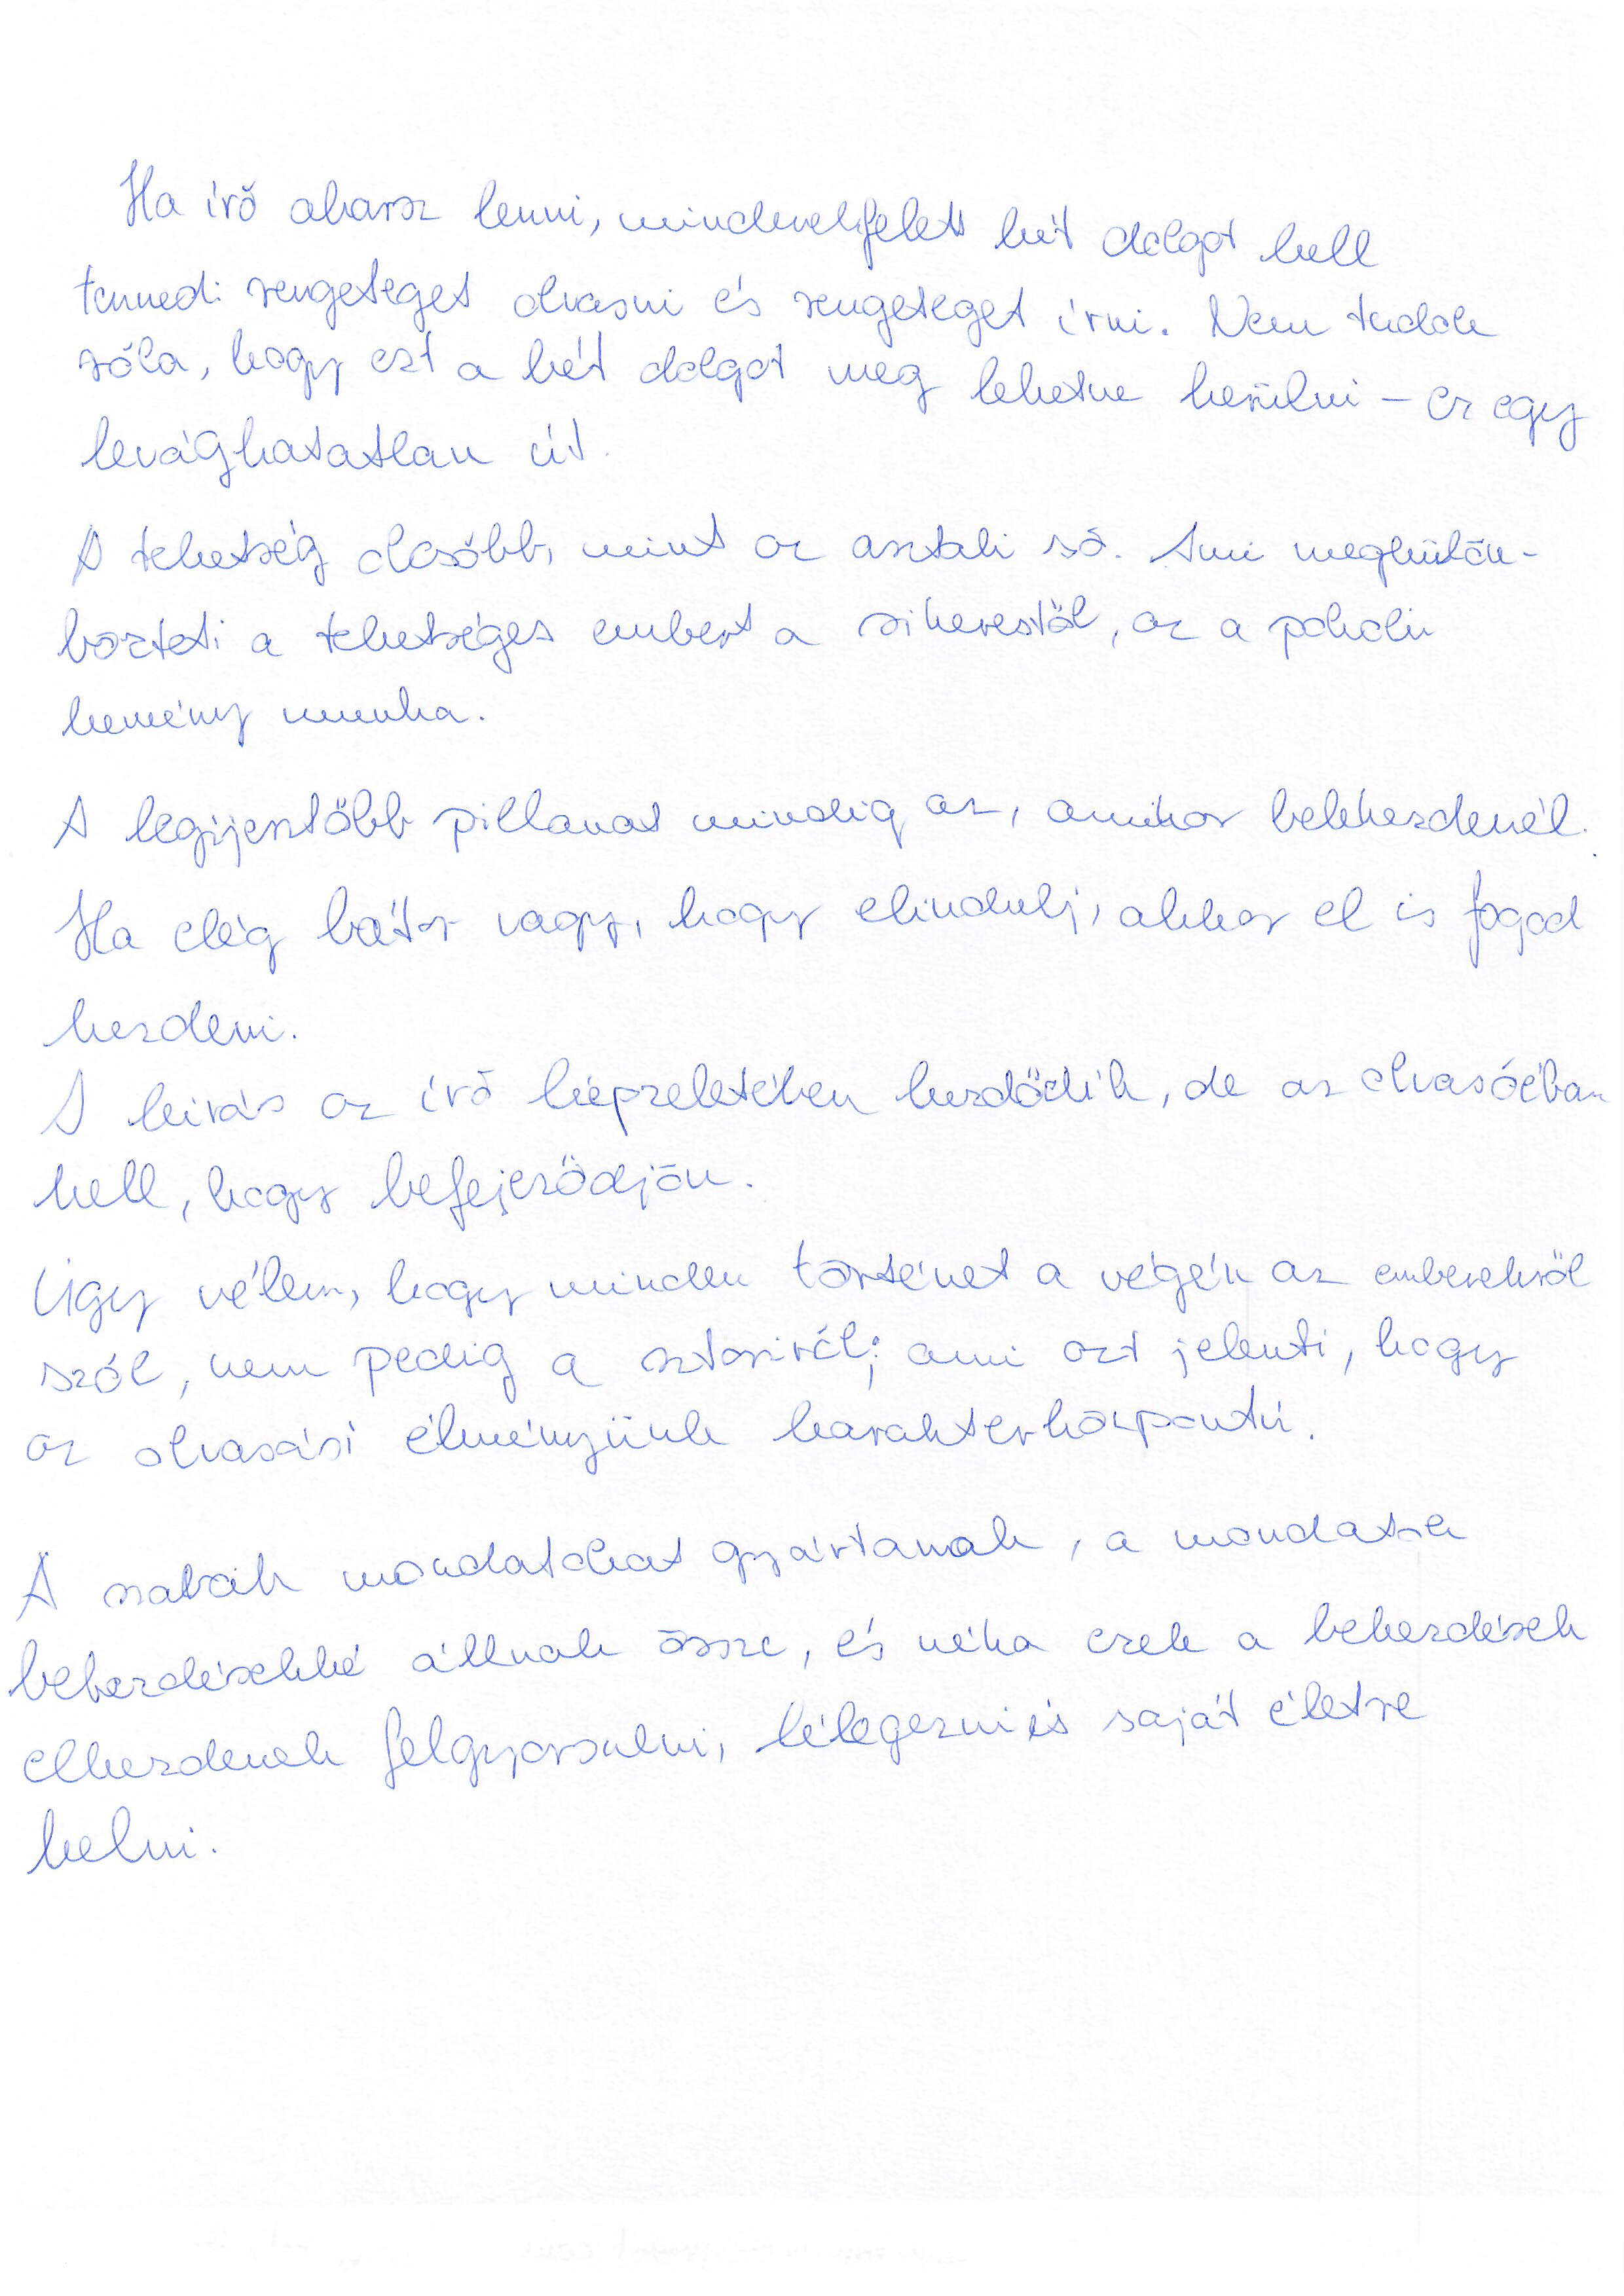 Ha író akarsz lenni, mindenekfelett két dolgot kell
tenned: rengeteget olvasni és rengeteget írni. Nem tudok
róla, hogy ezt a két dolgot meg lehetne kerülni – ez egy
levághatatlan út.
A tehetség olcsóbb, mint az asztali só. Ami megkülön-
bözteti a tehetséges embert a sikerestől, az a pokoli
kemény munka.
A legijesztőbb pillanat mindig az, amikor belekezdenél.
Ha elég bátor vagy, hogy elindulj, akkor el is fogod
kezdeni.
A leírás az író képzeletében kezdődik, de az olvasóéban
kell, hogy befejeződjön.
Úgy vélem, hogy minden történet a végén az emberekről
szól, nem pedig a sztoriról; ami azt jelenti, hogy
az olvasási élményünk karakterközpontú.
A szavak mondatokat gyártanak, a mondatok
bekezdésekké állnak össze, és néha ezek a bekezdések
elkezdenek felgyorsulni, lélegezni és saját életre
kelni.